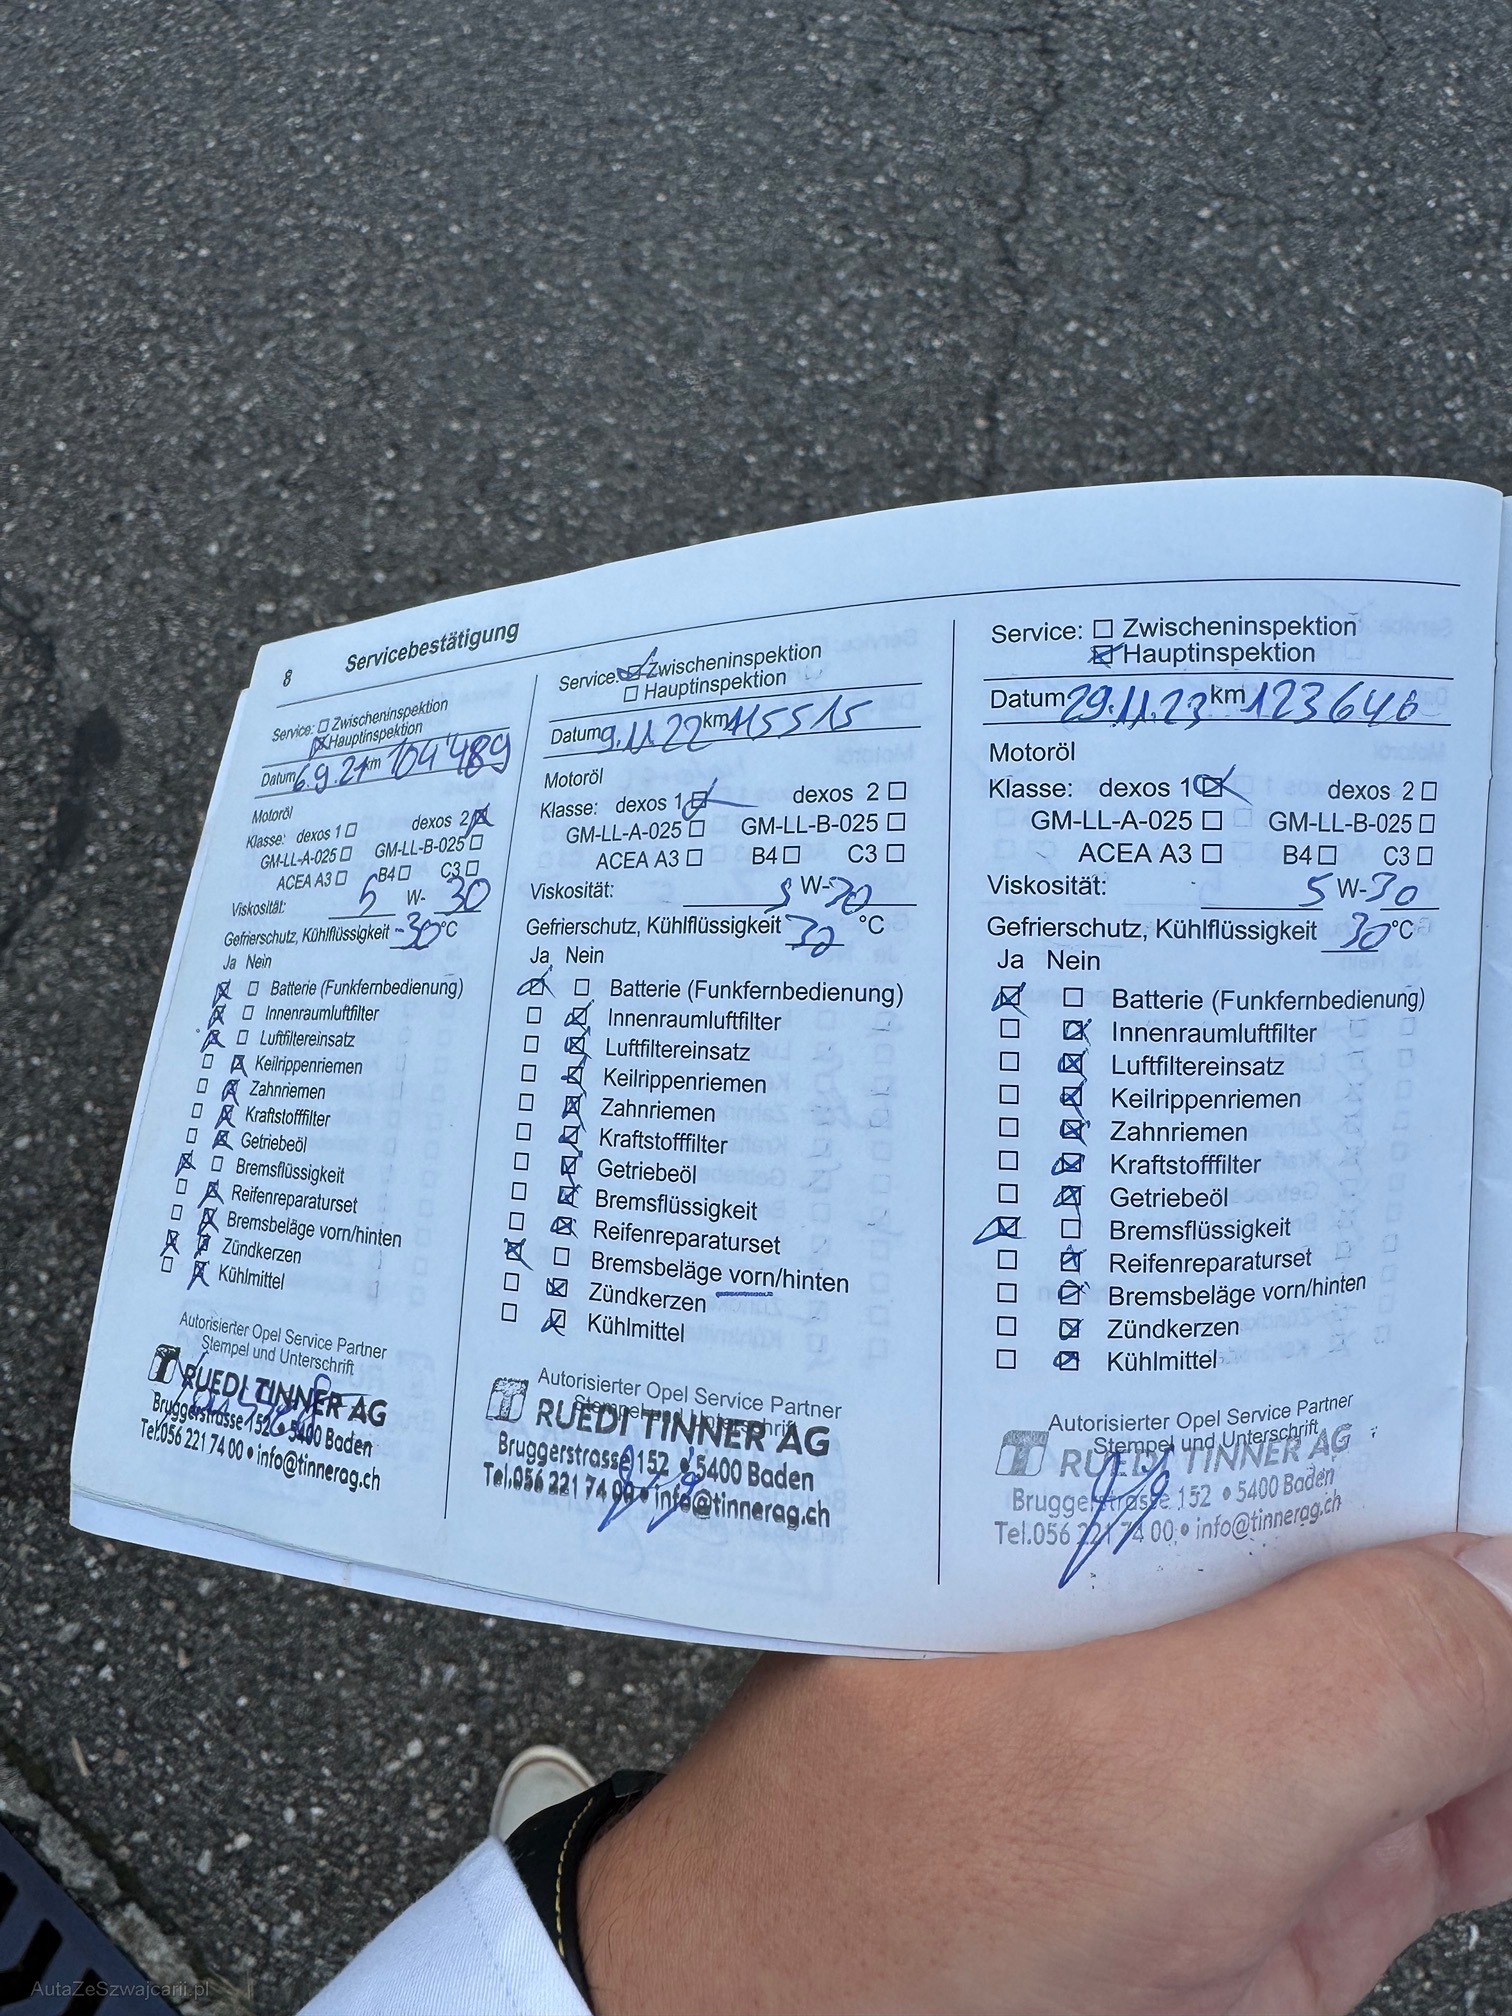 8 Servicebestätigung
Service: Zwischeninspektion
Hauptinspektion
Datum 6.9.21 km 104'489
Motoröl
Klasse: dexos 1 dexos 2
GM-LL-A-025 GM-LL-B-025
ACEA A3 B4 C3
Viskosität: 5 W- 30
Gefrierschutz, Kühlflüssigkeit -30 °C
Ja Nein
Batterie (Funkfernbedienung)
Innenraumluftfilter
Luftfiltereinsatz
Keilrippenriemen
Zahnriemen
Kraftstofffilter
Getriebeöl
Bremsflüssigkeit
Reifenreparaturset
Bremsbeläge vorn/hinten
Zündkerzen
Kühlmittel
Autorisierter Opel Service Partner
Stempel und Unterschrift
RUEDI TINNER AG
Bruggerstrasse 152 • 5400 Baden
Tel.056 221 74 00 • info@tinnerag.ch
Service: Zwischeninspektion
Hauptinspektion
Datum 9.11.22 km 115515
Motoröl
Klasse: dexos 1 dexos 2
GM-LL-A-025 GM-LL-B-025
ACEA A3 B4 C3
Viskosität: 5 W-30
Gefrierschutz, Kühlflüssigkeit 30 °C
Ja Nein
Batterie (Funkfernbedienung)
Innenraumluftfilter
Luftfiltereinsatz
Keilrippenriemen
Zahnriemen
Kraftstofffilter
Getriebeöl
Bremsflüssigkeit
Reifenreparaturset
Bremsbeläge vorn/hinten
Zündkerzen
Kühlmittel
Autorisierter Opel Service Partner
Stempel und Unterschrift
RUEDI TINNER AG
Bruggerstrasse 152 • 5400 Baden
Tel.056 221 74 00 • info@tinnerag.ch
Service: Zwischeninspektion
Hauptinspektion
Datum 29.11.23 km 123640
Motoröl
Klasse: dexos 1 dexos 2
GM-LL-A-025 GM-LL-B-025
ACEA A3 B4 C3
Viskosität: 5 W-30
Gefrierschutz, Kühlflüssigkeit 30 °C
Ja Nein
Batterie (Funkfernbedienung)
Innenraumluftfilter
Luftfiltereinsatz
Keilrippenriemen
Zahnriemen
Kraftstofffilter
Getriebeöl
Bremsflüssigkeit
Reifenreparaturset
Bremsbeläge vorn/hinten
Zündkerzen
Kühlmittel
Autorisierter Opel Service Partner
Stempel und Unterschrift
RUEDI TINNER AG
Bruggerstrasse 152 • 5400 Baden
Tel.056 221 74 00 • info@tinnerag.ch
AutaZeSzwajcarii.pl